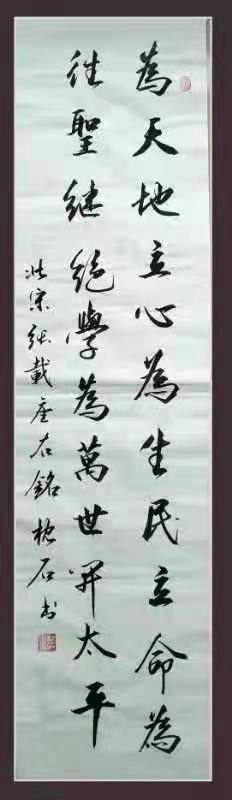 為天地立心為生民立命為
往聖继絕學為萬世開太平
北宋張載座右銘枕石书